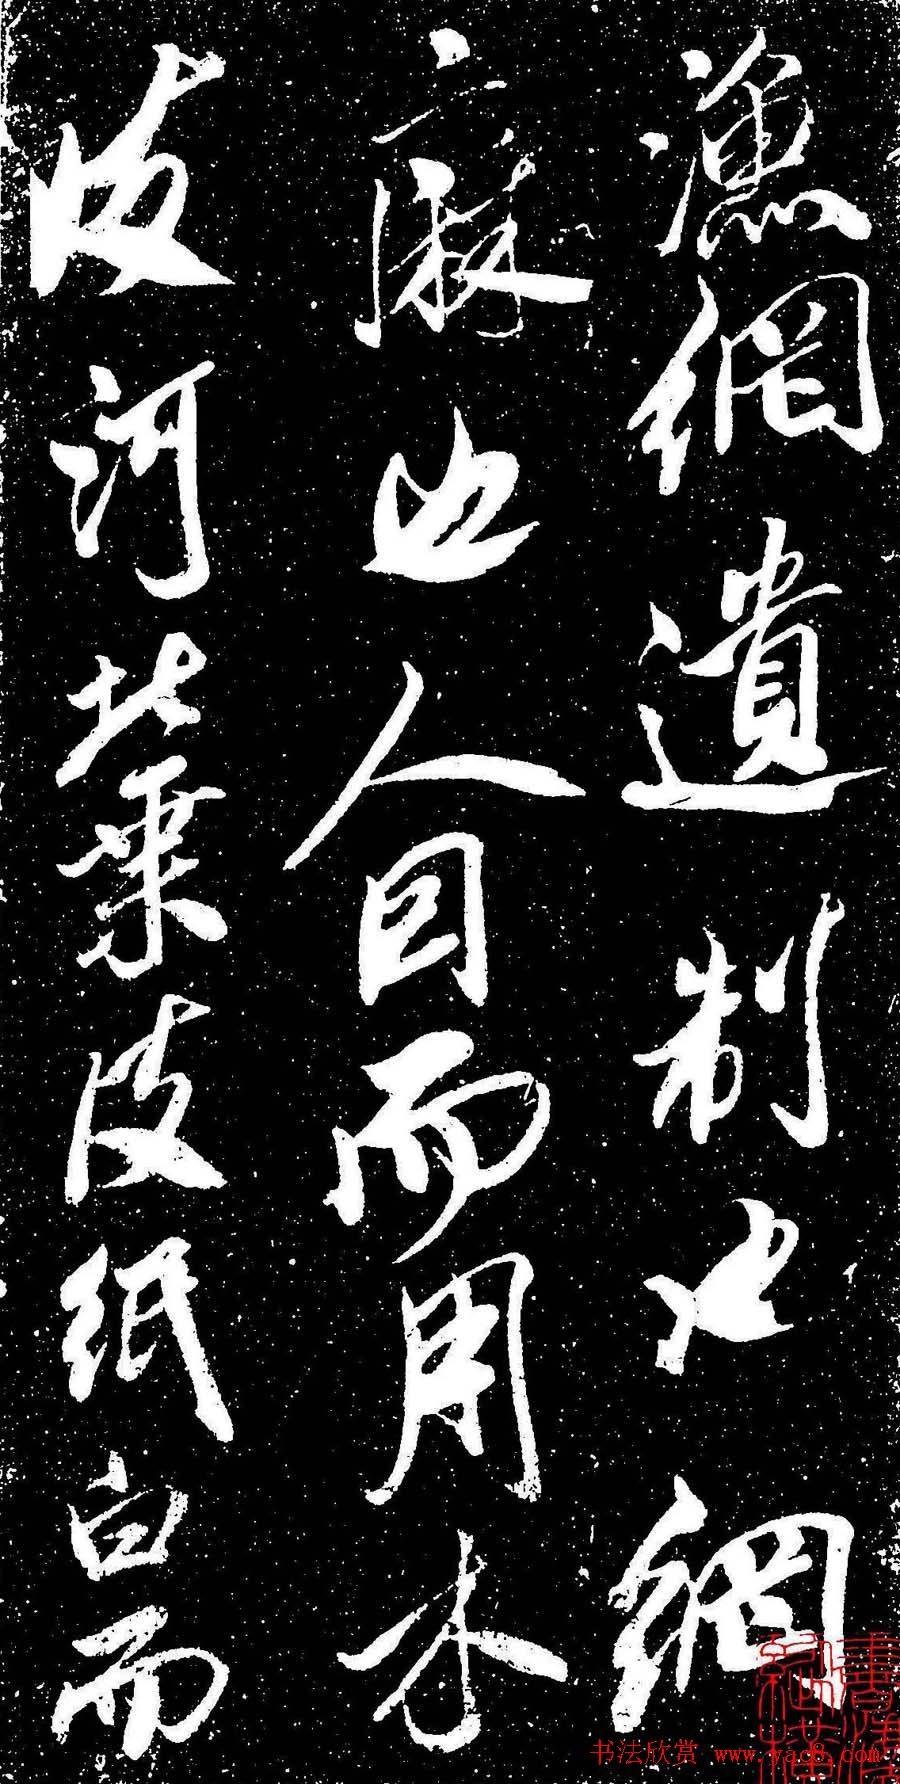 漁網遺制也網
麻也人因而用木
皮河北桑皮紙白而
书法欣赏 www.yac8.com